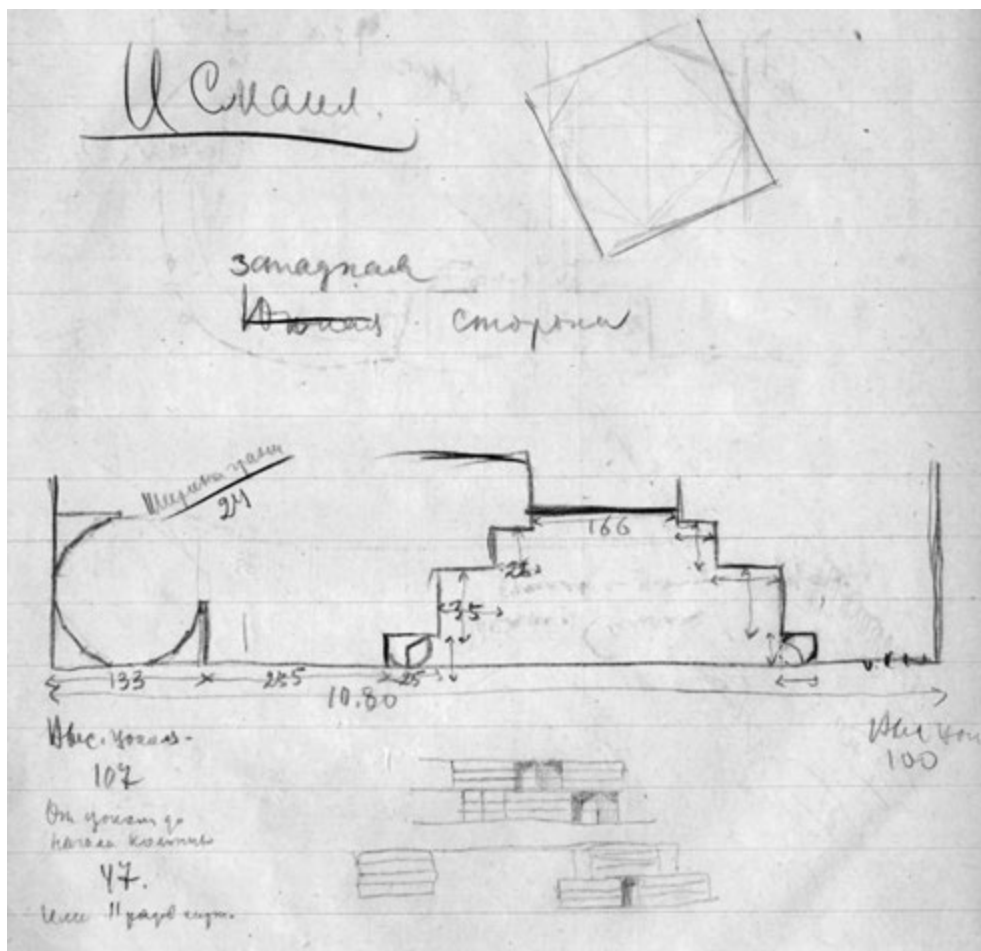 Исмаил.
западная
Южная сторона
Ширина грани
24
166
22
35
133 255 25
10.80
Выс. цоколя -
107
Выс цок
100
От цоколя до
начала колонны
47.
или 11 рядов кирп.